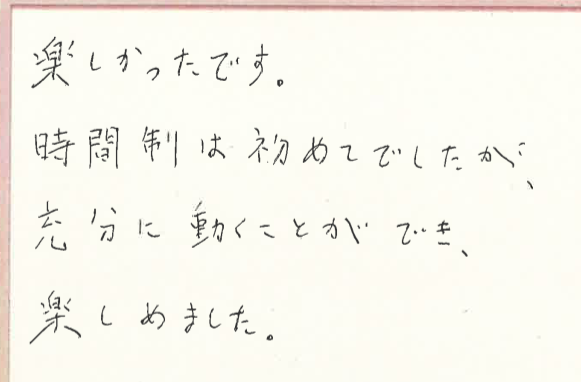 楽しかったです。
時間制は初めてでしたが、
充分に動くことができ、
楽しめました。